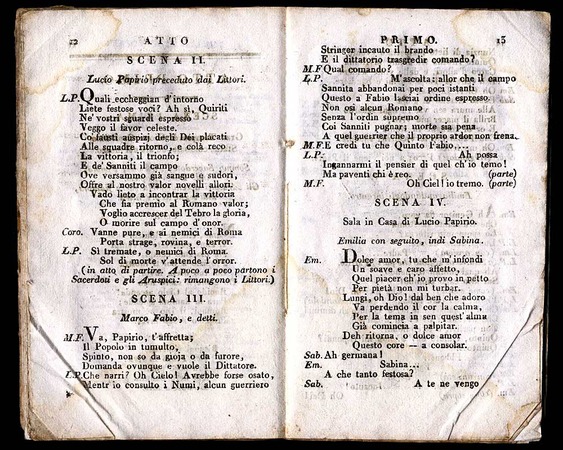 12 ATTO
SCENA II.
Lucio Papirio preceduto dai Littori.
L.P. Quali eccheggian d'intorno
Liete festose voci? Ah sì, Quiriti
Ne' vostri sguardi espresso
Veggo il favor celeste.
Co' fausti auspicj degli Dei placati
Alle squadre ritorno, e colà reco
La vittoria, il trionfo;
E de' Sanniti il campo
Ove versammo già sangue e sudori,
Offre al nostro valor novelli allori.
Vado lieto a incontrar la vittoria
Che fia premio al Romano valor;
Voglio accrescer del Tebro la gloria,
O morire sul campo d'onor.
Coro. Vanne pure, e ai nemici di Roma
Porta strage, rovina, e terror.
L.P. Sì tremate, o nemici di Roma
Sol di morte v'attende l'orror.
(in atto di partire. A poco a poco partono i
Sacerdoti e gli Aruspici: rimangono i Littori.)
SCENA III.
Marco Fabio, e detti.
M.F. Va, Papirio, t'affretta;
Il Popolo in tumulto,
Spinto, non so da gioja o da furore,
Domanda ovunque e vuole il Dittatore.
L.P. Che narri? Oh Cielo! Avrebbe forse osato,
Mentr'io consulto i Numi, alcun guerriero
PRIMO. 13
Stringer incauto il brando
E il dittatorio trasgredir comando?
M.F. Qual comando?
L.P. M'ascolta: allor che il campo
Sannita abbandonai per poci istanti
Questo a Fabio lasciai ordine espresso.
Non osi alcun Romano
Senza l'ordin supremo
Coi Sanniti pugnar; morte sia pena
A quel guerrier che il proprio ardor non frena.
M.F. E credi tu che Quinto Fabio....
L.P. Ah possa
Ingannarmi il pensier di quel ch'io temo!
Ma paventi chi è reo. (parte)
M.F. Oh Ciel! io tremo. (parte)
SCENA IV.
Sala in Casa di Lucio Papirio.
Emilia con seguito, indi Sabina.
Em. Dolce amor, tu che m'infondi
Un soave e caro affetto,
Quel piacer ch'io provo in petto
Per pietà non mi turbar.
Lungi, oh Dio! dal ben che adoro
Va perdendo il cor la calma,
Per la tema in sen quest'alma
Già comincia a palpitar.
Deh ritorna, o dolce amor
Questo core — a consolar.
Sab. Ah germana!
Em. Sabina...
A che tanto festosa?
Sab. A te ne vengo